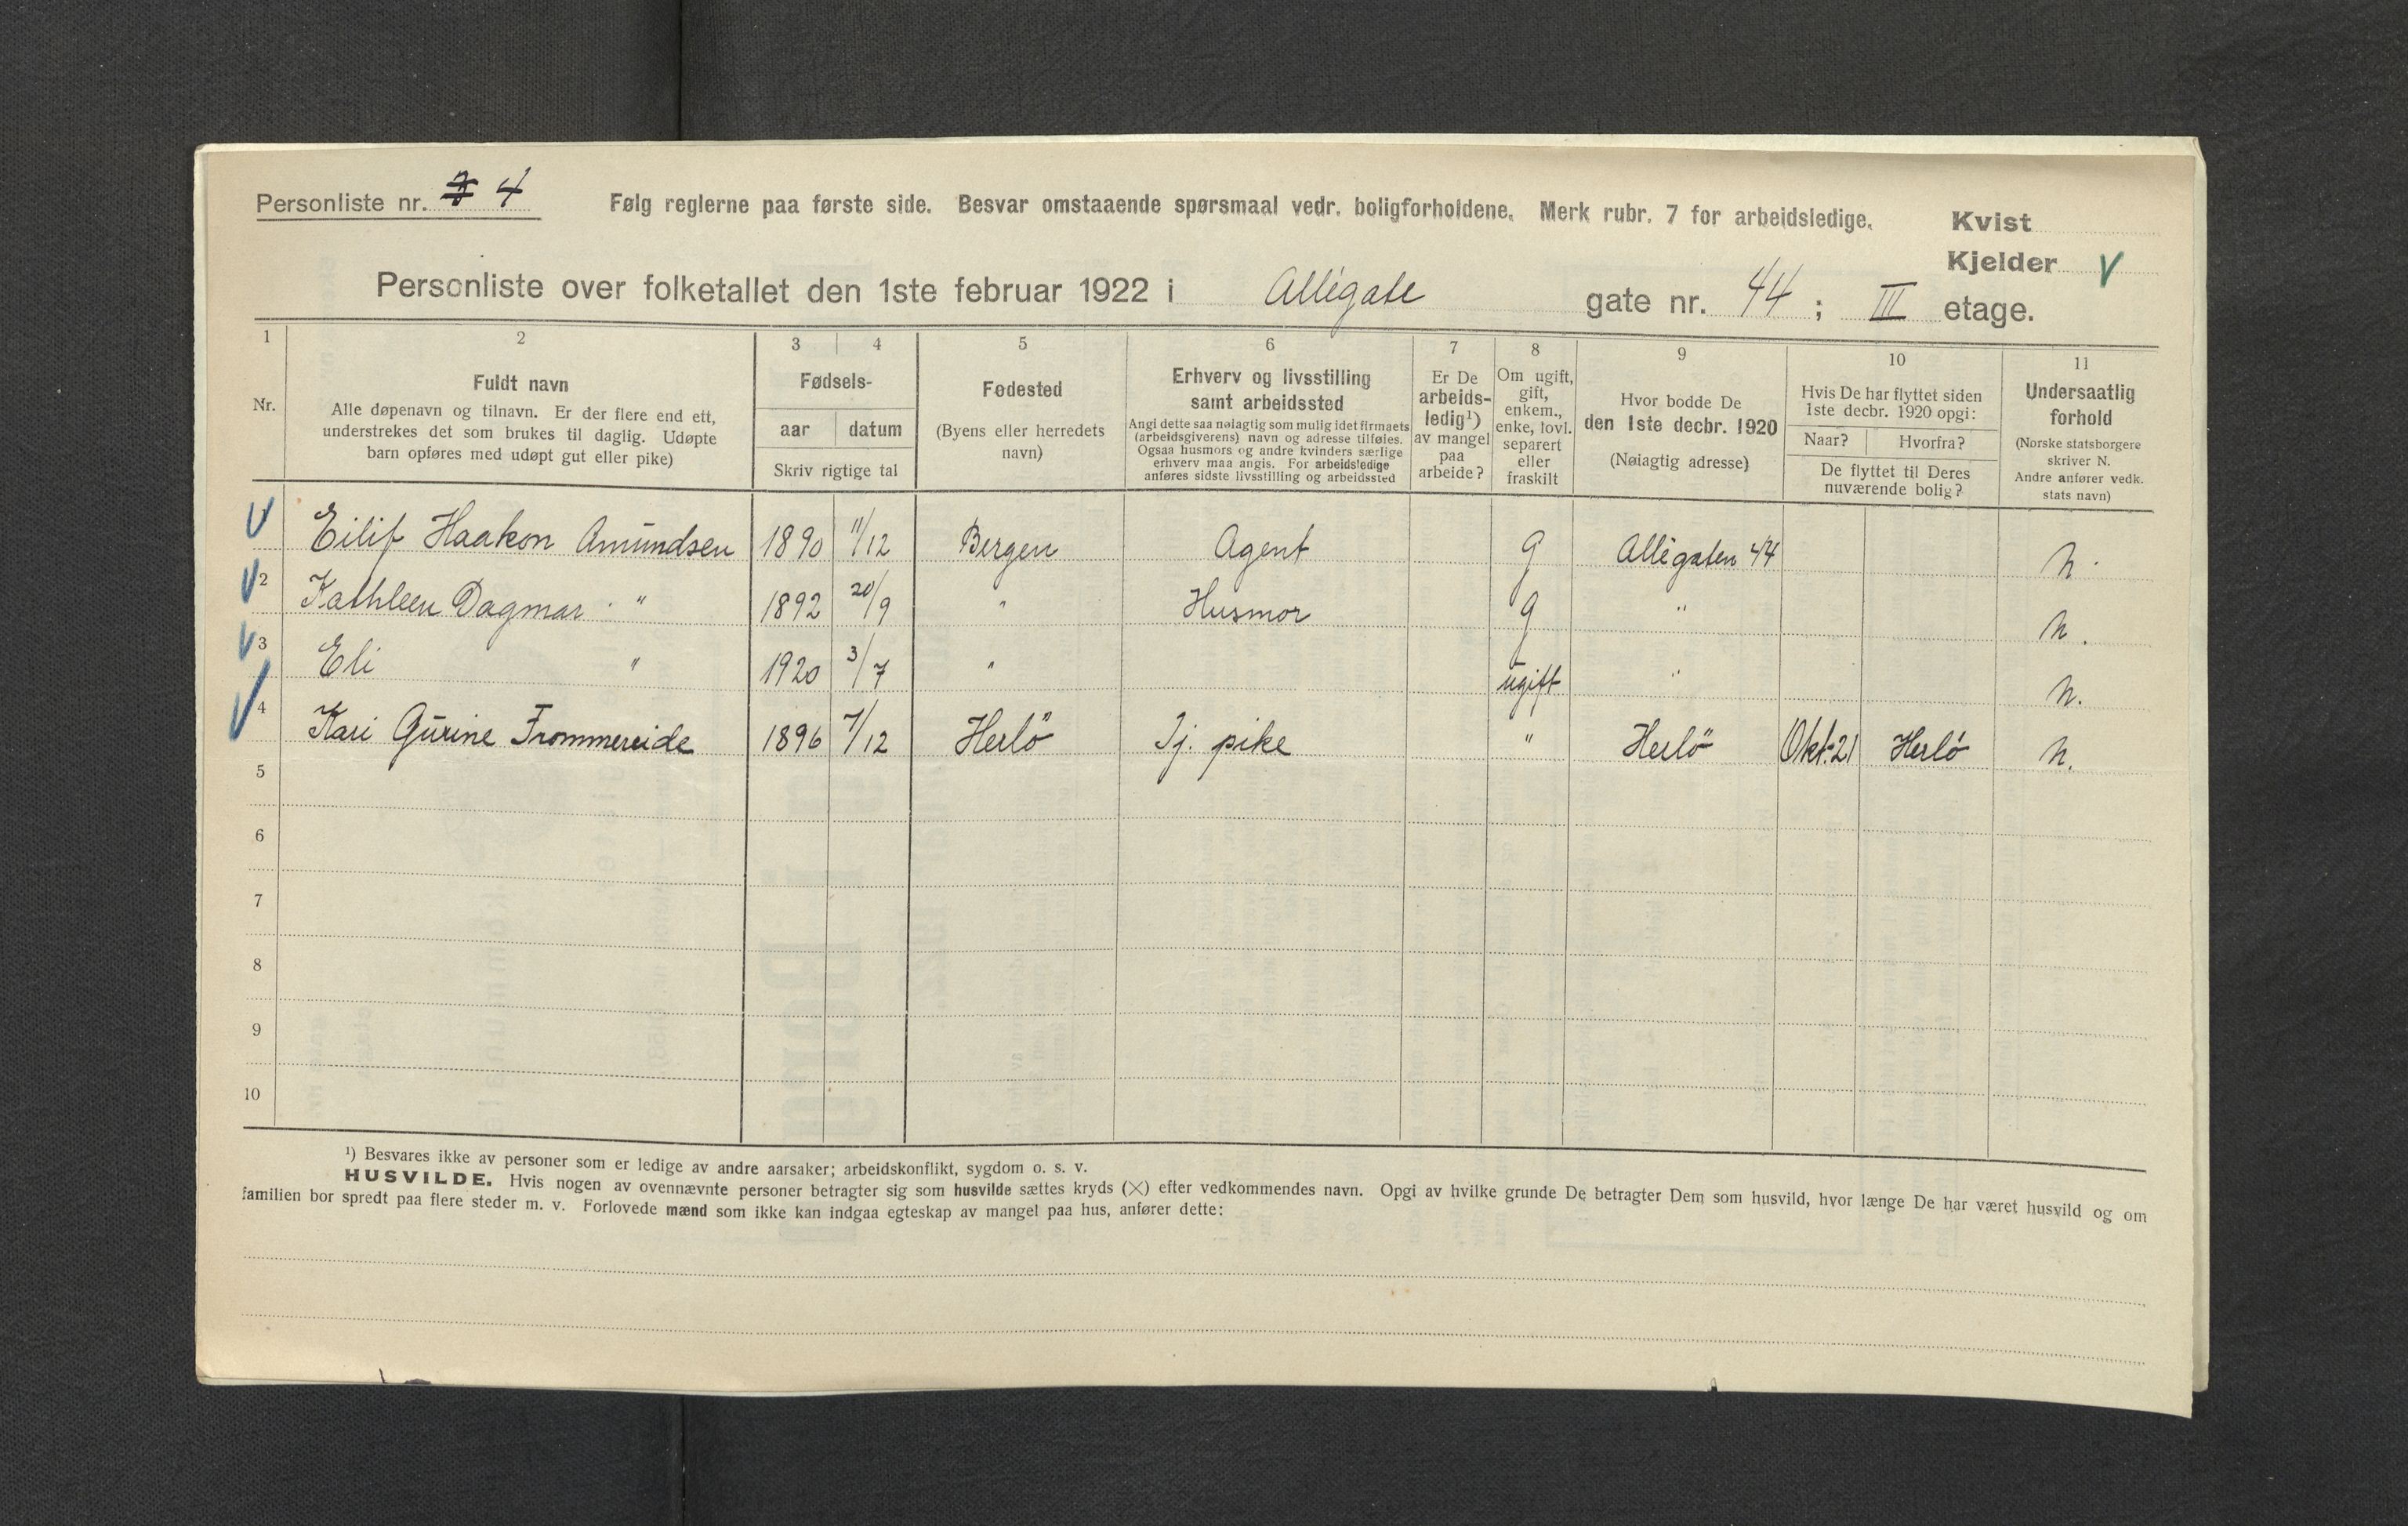 Personliste nr. 4
Følg reglerne paa første side. Besvar omstaaende spørsmaal vedr. boligforholdene. Merk rubr. 7 for arbeidsledige.
Kvist
Kjelder V
Personliste over folketallet den 1ste februar 1922 i Allégate gate nr. 44 ; III etage.
1 2 3 4 5 6 7 8 9 10 11
Nr.
Fuldt navn
Alle døpenavn og tilnavn. Er der flere end ett,
understrekes det som brukes til daglig. Udøpte
barn opføres med udøpt gut eller pike)
Fødsels-
aar datum
Skriv rigtige tal
Fødested
(Byens eller herredets
navn)
Erhverv og livsstilling
samt arbeidssted
Angi dette saa nøiagtig som mulig idet firmaets
(arbeidsgiverens) navn og adresse tilføies.
Ogsaa husmors og andre kvinders særlige
erhverv maa angis. For arbeidsledige
anføres sidste livsstilling og arbeidssted
Er De
arbeids-
ledig¹)
av mangel
paa
arbeide?
Om ugift,
gift,
enkem.,
enke, lovl.
separert
eller
fraskilt
Hvor bodde De
den 1ste decbr. 1920
(Nøiagtig adresse)
Hvis De har flyttet siden
1ste decbr. 1920 opgi:
Naar? Hvorfra?
De flyttet til Deres
nuværende bolig?
Undersaatlig
forhold
(Norske statsborgere
skriver N.
Andre anfører vedk.
stats navn)
Eilif Haakon Amundsen 1890 11/12 Bergen Agent g Allégaten 44 n.
2 Kathleen Dagmar " 1892 20/9 " Husmor g " n.
3 Eli " 1920 3/7 " ugift " n.
4 Kari Gurine Frommereide 1896 7/12 Herlö Tj. pike " Herlö Okt. 21 Herlö n.
5
6
7
8
9
10
¹) Besvares ikke av personer som er ledige av andre aarsaker; arbeidskonflikt, sygdom o. s. v.
HUSVILDE. Hvis nogen av ovennævnte personer betragter sig som husvilde sættes kryds (×) efter vedkommendes navn. Opgi av hvilke grunde De betragter Dem som husvild, hvor længe De har været husvild og om
familien bor spredt paa flere steder m. v. Forlovede mænd som ikke kan indgaa egteskap av mangel paa hus, anfører dette: